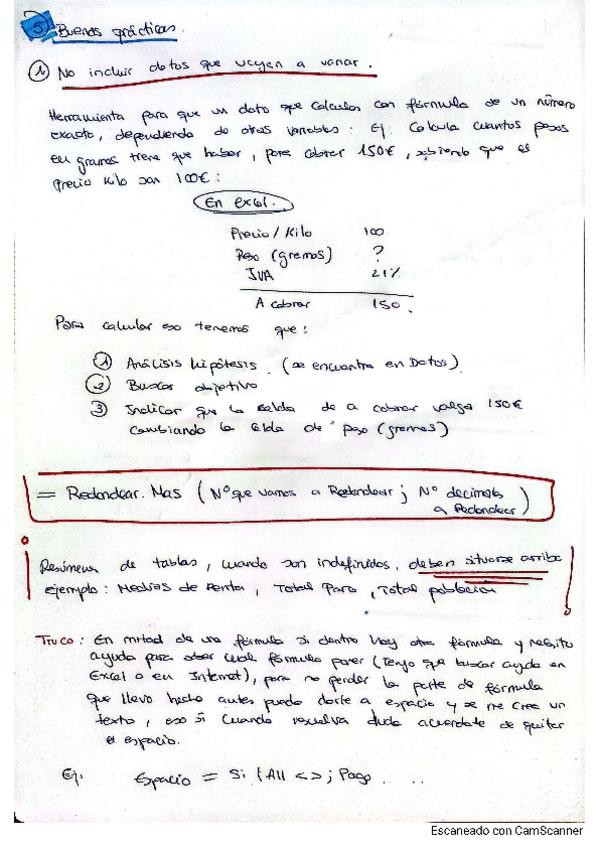 5 Buenas prácticas.
1) No incluir datos que vayan a variar.
Herramienta para que un dato que calculas con fórmula de un número
exacto, dependiendo de otras variables: Ej: Calcula cuantos pesos
en gramos tiene que haber, para cobrar 150€, sabiendo que el
Precio kilo son 100€:
En excel.
Precio/Kilo 100
Peso (gramos) ?
IVA 21%
A cobrar 150.
Para calcular eso tenemos que:
1 Análisis hipótesis. (se encuentra en Datos).
2 Buscar objetivo
3 Indicar que la celda de a cobrar valga 150€
cambiando la celda de peso (gramos)
= Redondear.Mas (Nº que vamos a Redondear; Nº decimales
a Redondear)
Resúmenes de tablas, cuando son indefinidos, deben situarse arriba
ejemplo: Medias de Renta, Total Paro, Total población
Truco: En mitad de una fórmula si dentro hay otra fórmula y necesito
ayuda para saber cual fórmula poner (Tengo que buscar ayuda en
Excel o en Internet), para no perder la parte de fórmula
que llevo hecho antes puedo darle a espacio y se me crea un
texto, eso si cuando resuelva duda acuerdate de quitar
el espacio.
Ej. Espacio = Si (A11 <>; Pago. . . .
Escaneado con CamScanner